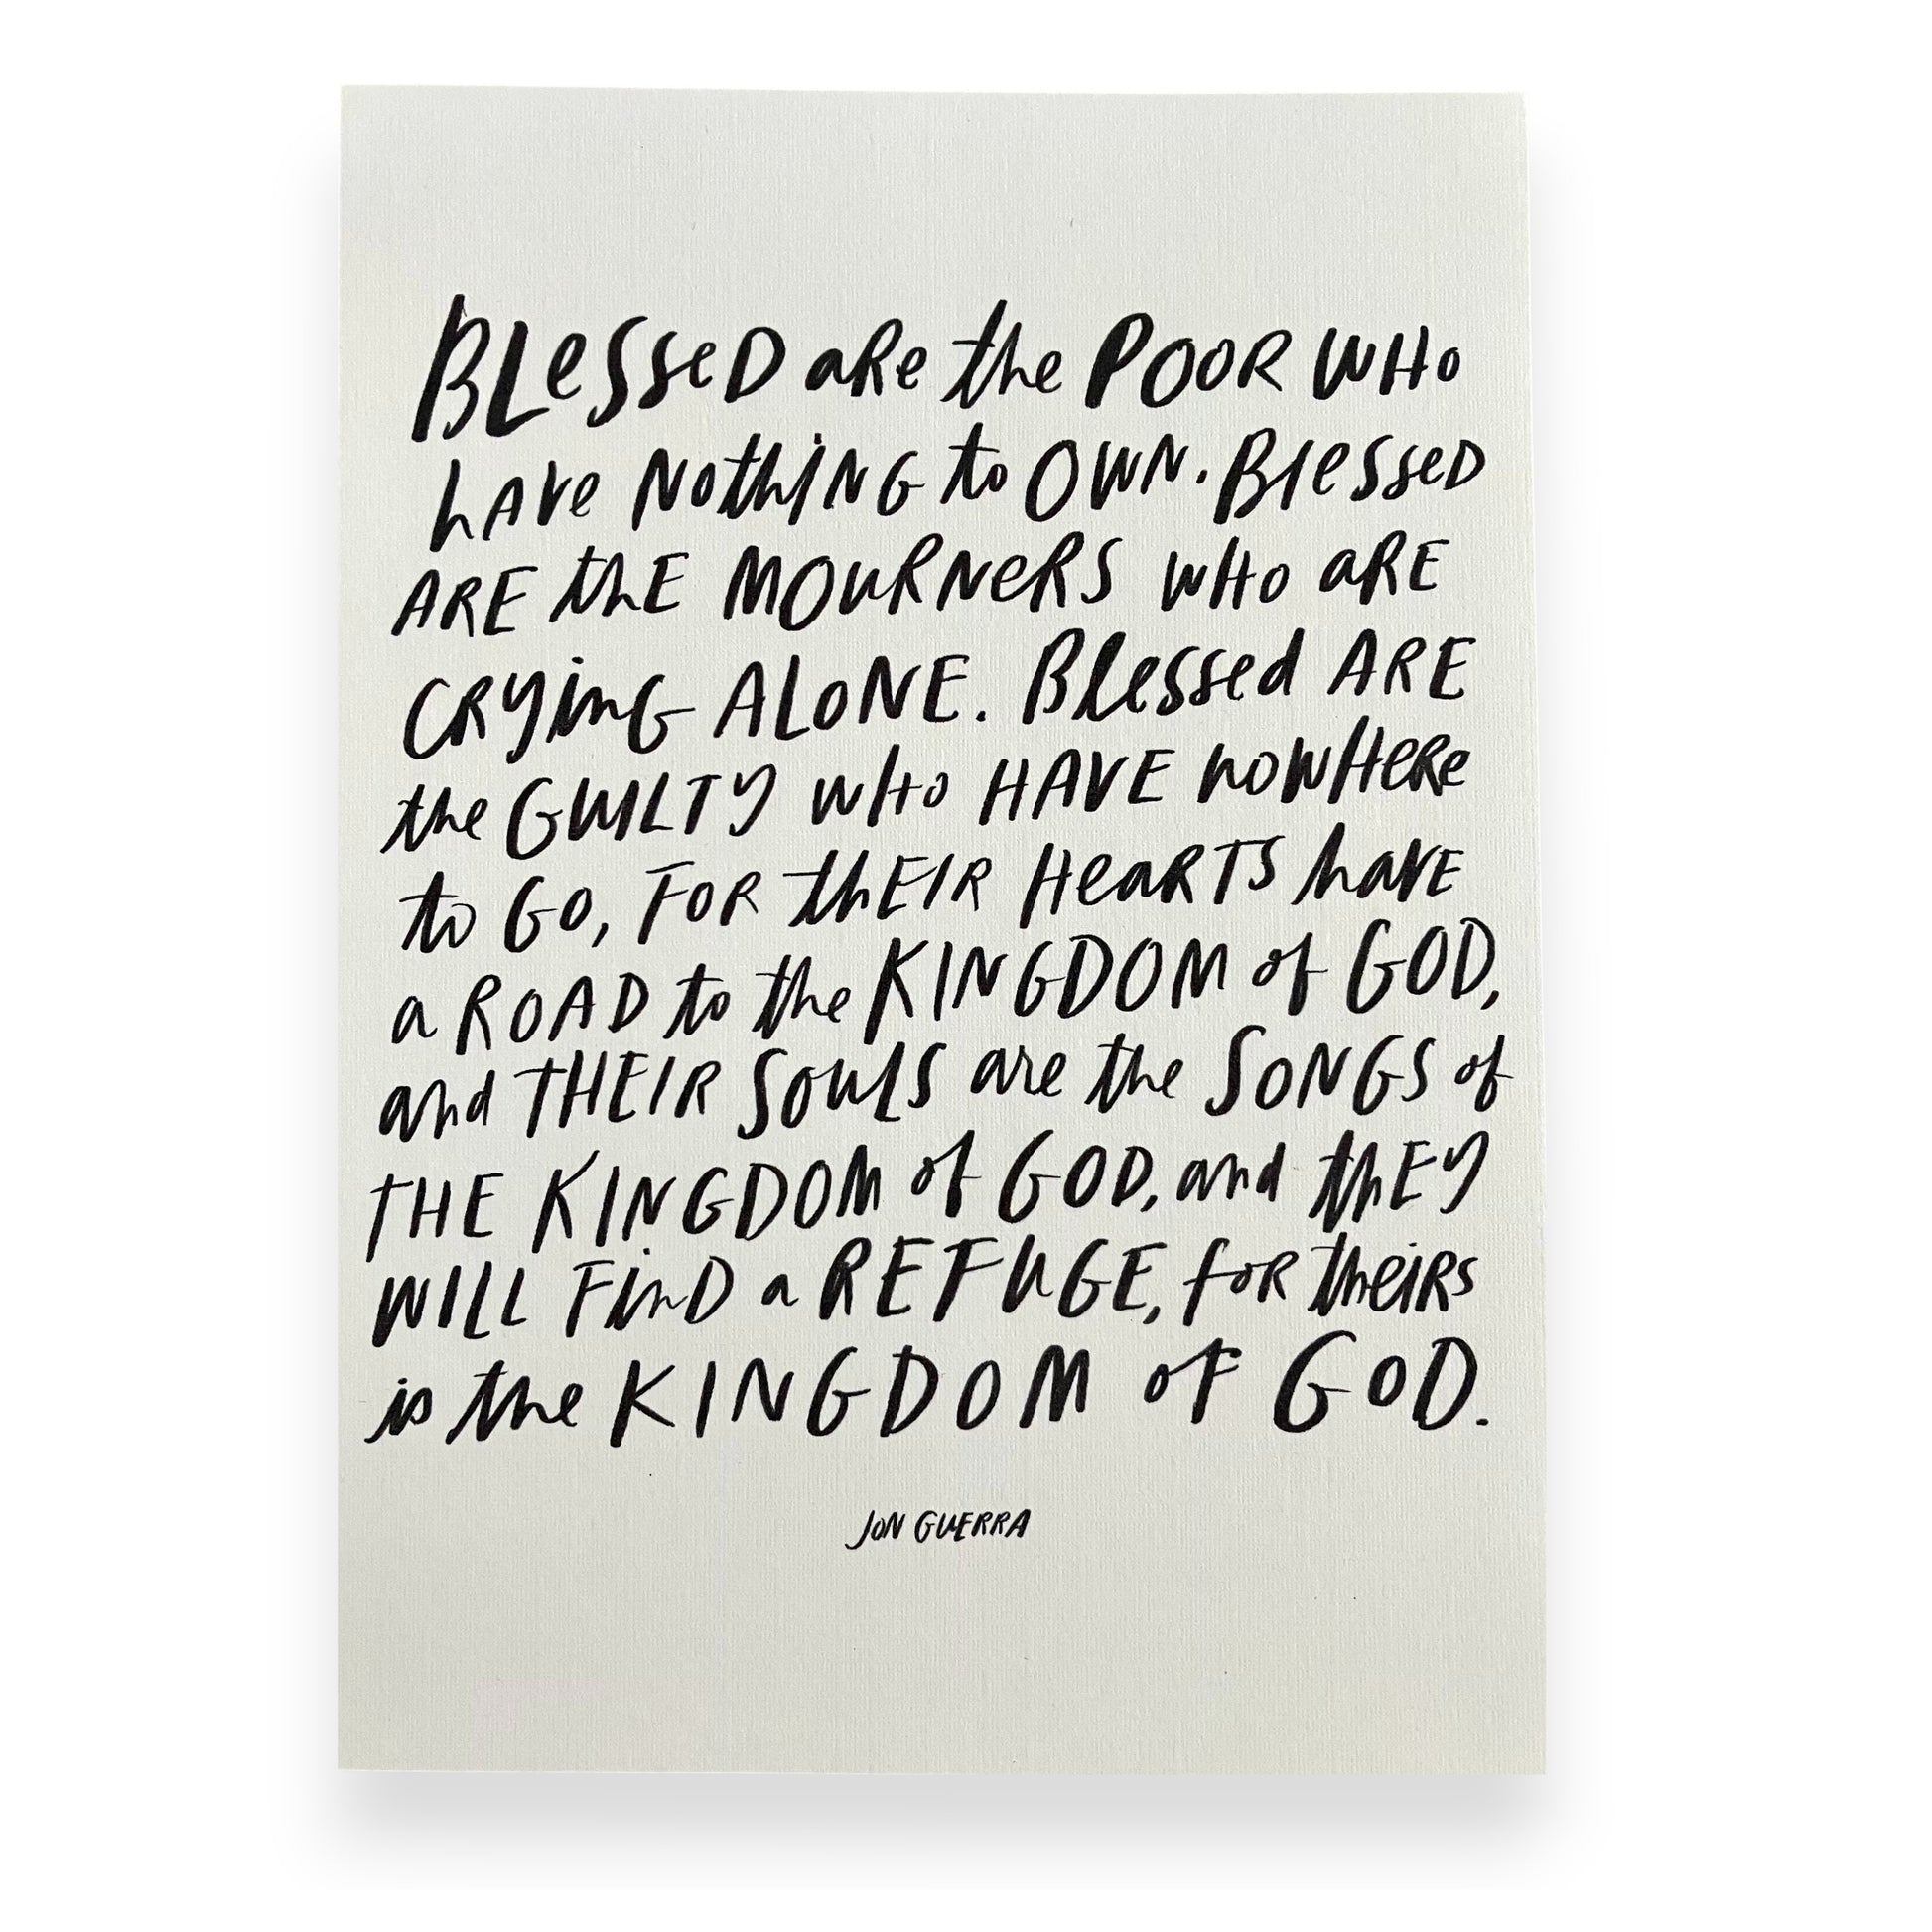 BLesseD aRe the POOR WHo
hAve NothiNG to OWN. Blessed
ARE thE MOuRNeRS wHo aRE
CRyinG ALoNE. Blessed ARE
the GUILTY wHo HAVE noWHeRe
to Go, FOR thEIR HeaRTS havE
a ROAD to the KINGDOM of GOD,
and THEIR SouLS are the SONGS of
THE KINGDOM of GOD, and thEY
WILL FinD a REFuGE, foR theiRs
is the KINGDOM oF GoD.
JON GUERRA